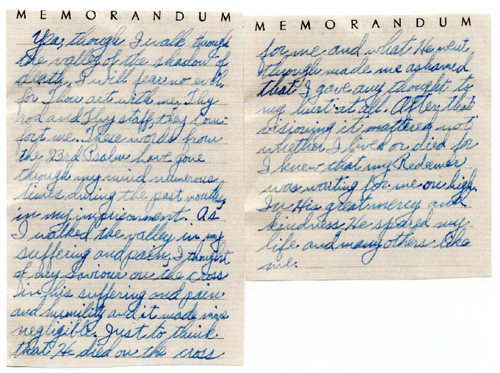 MEMORANDUM
Yea, though I walk through
the valley of the shadow of
death, I will fear no evil
for Thou art with me, Thy
rod and Thy staff, they com-
fort me. These words from
the 23rd Psalm have gone
through my mind numerous
times during the past months
in my imprisonment. As
I walked the valley in my
suffering and pain, I thought
of my Saviour on the cross
in his suffering and pain
and humility and it made mine
negligible. Just to think
that He died on the cross
MEMORANDUM
for me and what He went
through made me ashamed
that I gave any thought to
my hurt at all. After that
it mattered not
whether I lived or died for
I knew that my Redeemer
was waiting for me on high.
In His great mercy and
kindness, He spared my
life and many others like
me.